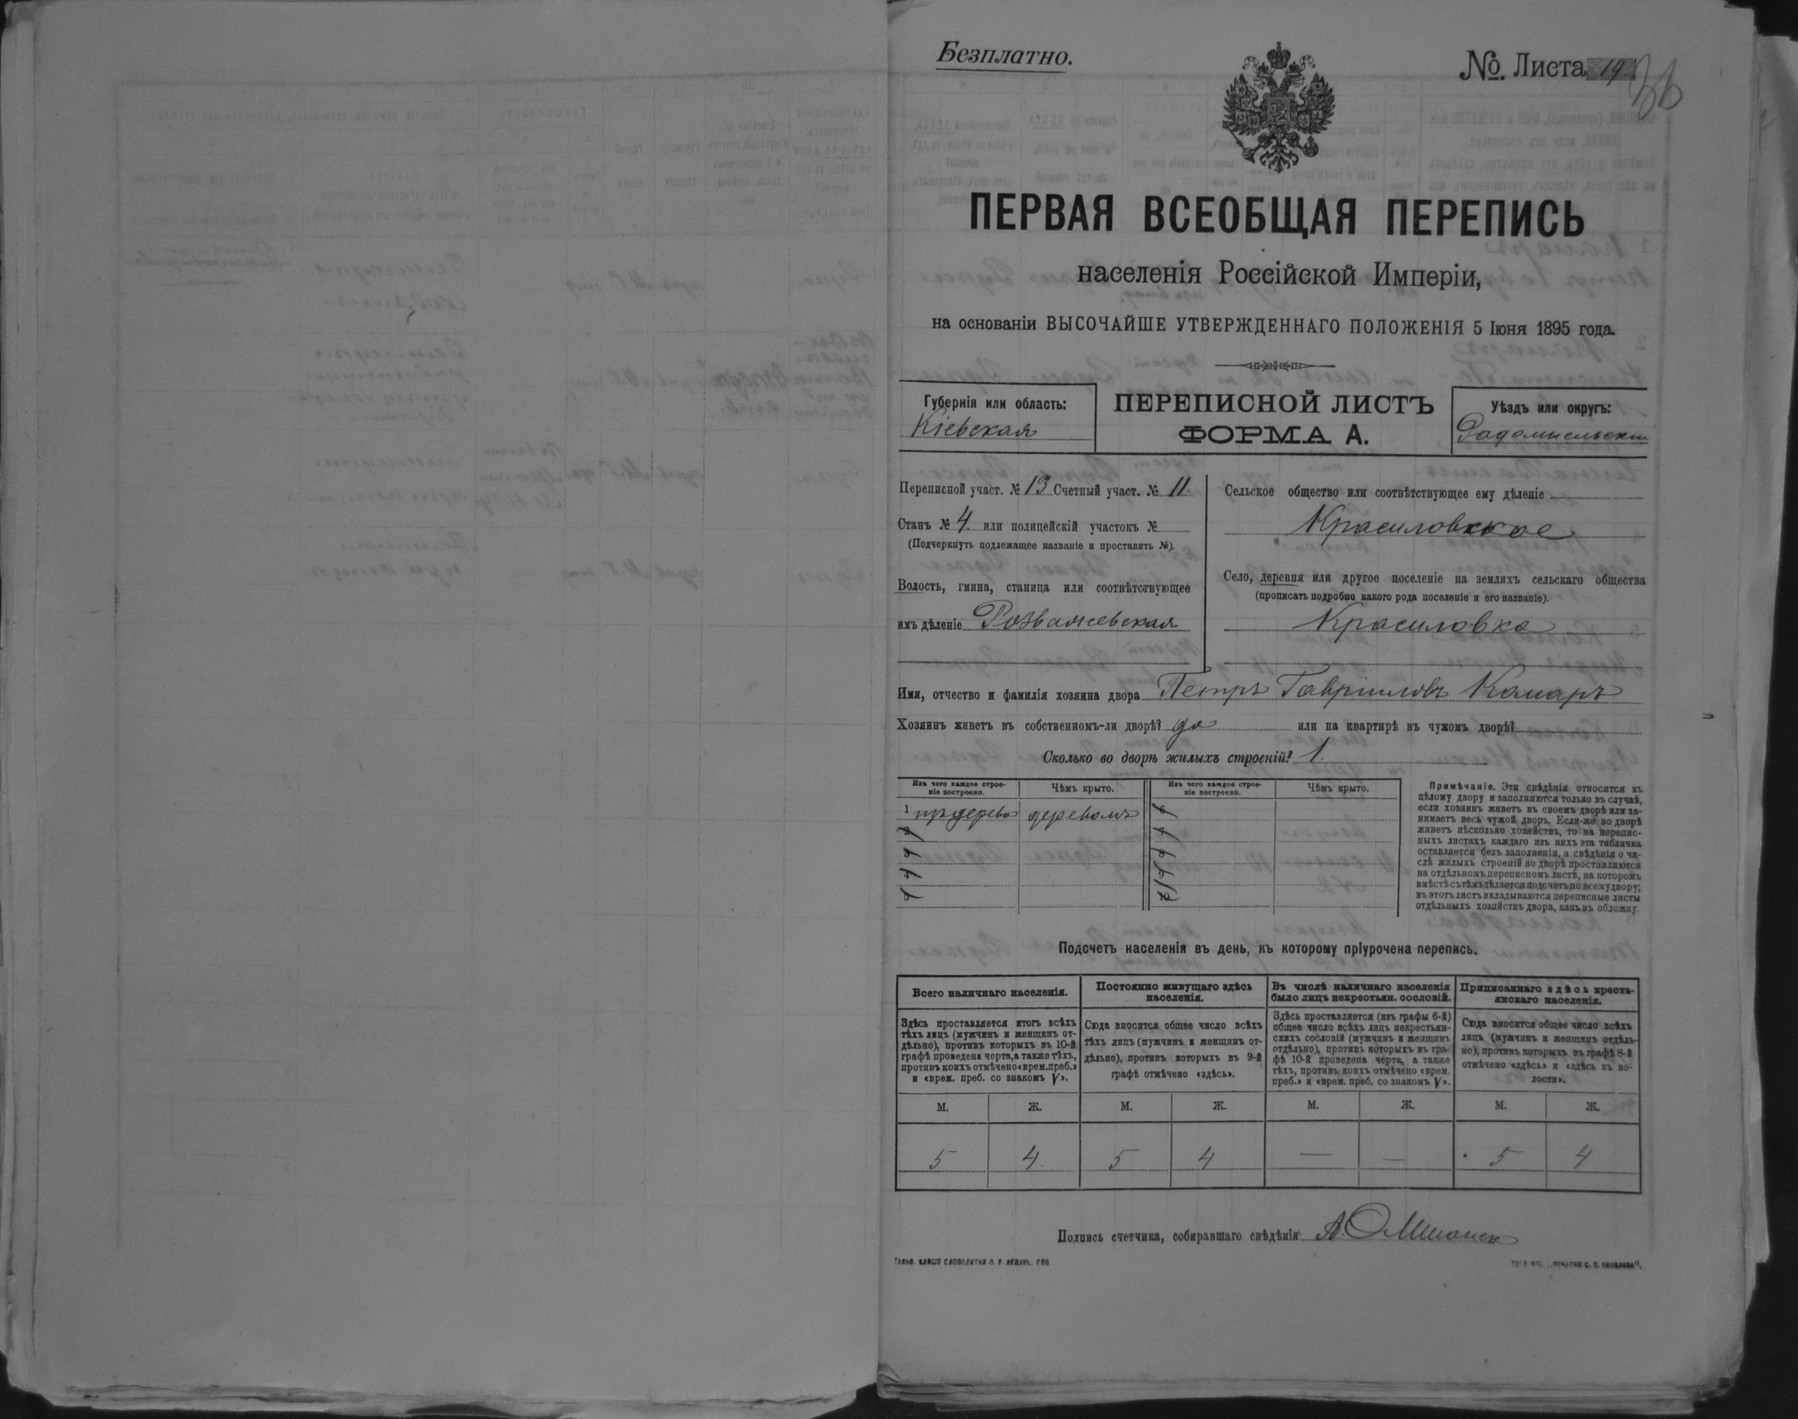 Безплатно.
№ Листа 19
36
ПЕРВАЯ ВСЕОБЩАЯ ПЕРЕПИСЬ
населенія Россійской Имперіи,
на основаніи ВЫСОЧАЙШЕ УТВЕРЖДЕННАГО ПОЛОЖЕНІЯ 5 Іюня 1895 года.
Губернія или область:
Кіевская
ПЕРЕПИСНОЙ ЛИСТЪ
ФОРМА А.
Уѣздъ или округъ:
Радомысльскій
Переписной участ. № 13 Счетный участ. № 11.
Станъ № 4. или полицейскій участокъ №
(Подчеркнуть подлежащее названіе и проставить №).
Волость, гмина, станица или соотвѣтствующее
имъ дѣленіе Розважевская
Сельское общество или соотвѣтствующее ему дѣленіе
Красиловское
Село, деревня или другое поселеніе на земляхъ сельскаго общества
(прописать подробно какого рода поселеніе и его названіе).
Красиловка
Имя, отчество и фамилія хозяина двора Петръ Гавріиловъ Комаръ
Хозяинъ живетъ въ собственномъ-ли дворѣ? да или на квартирѣ въ чужомъ дворѣ?
Сколько во дворѣ жилыхъ строеній? 1.
Изъ чего каждое строе-
ніе построено.
Чѣмъ крыто.
Изъ чего каждое строе-
ніе построено.
Чѣмъ крыто.
1 изъ дерева деревомъ
Примѣчаніе. Эти свѣдѣнія относятся къ
цѣлому двору и заполняются только въ случаѣ,
если хозяинъ живетъ въ своемъ дворѣ или за-
нимаетъ весь чужой дворъ. Если-же во дворѣ
живетъ нѣсколько хозяйствъ, то на перепис-
ныхъ листахъ каждаго изъ нихъ эта табличка
оставляется безъ заполненія, а свѣдѣнія о чи-
слѣ жилыхъ строеній во дворѣ проставляются
на отдѣльномъ переписномъ листѣ, на которомъ
вмѣстѣ съ тѣмъ дѣлается подсчетъ по всему двору;
въ этотъ листъ вкладываются переписные листы
отдѣльныхъ хозяйствъ двора, какъ въ обложку.
Подсчетъ населенія въ день, къ которому пріурочена перепись.
Всего наличнаго населенія.
Постоянно живущаго здѣсь
населенія.
Въ числѣ наличнаго населенія
было лицъ некрестьян. сословій.
Приписаннаго здѣсь кресть-
янскаго населенія.
Здѣсь проставляется итогъ всѣхъ
тѣхъ лицъ (мужчинъ и женщинъ от-
дѣльно), противъ которыхъ въ 10-й
графѣ проведена черта, а также тѣхъ,
противъ коихъ отмѣчено «врем. преб.»
и «врем. преб. со знакомъ V».
Сюда вносится общее число всѣхъ
тѣхъ лицъ (мужчинъ и женщинъ от-
дѣльно), противъ которыхъ въ 9-й
графѣ отмѣчено «здѣсь».
Здѣсь проставляется (изъ графы 6-й)
общее число всѣхъ лицъ некрестьян-
скихъ сословій (мужчинъ и женщинъ
отдѣльно), противъ которыхъ въ гра-
фѣ 10-й проведена черта, а также
тѣхъ, противъ коихъ отмѣчено «врем.
преб.» и «врем. преб. со знакомъ V».
Сюда вносится общее число всѣхъ
лицъ (мужчинъ и женщинъ отдѣль-
но), противъ которыхъ въ графѣ 8-й
отмѣчено «здѣсь» и «здѣсь къ во-
лости».
М. Ж. М. Ж. М. Ж. М. Ж.
5 4. 5 4 — — 5 4
Подпись счетчика, собиравшаго свѣдѣнія